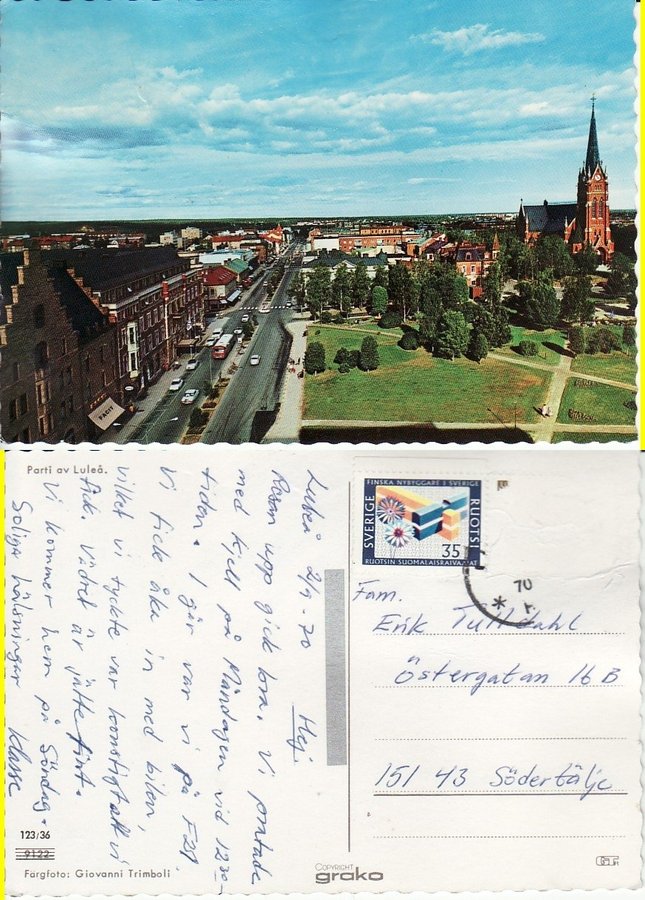 FACIT
Parti av Luleå.
Luleå 2/9-70
Hej
Resan upp gick bra. Vi pratade
med Kjell på Måndagen vid 1230-
tiden. I går var vi på F21
Vi fick åka in med bilen,
vilket vi tyckte var konstigt att vi
fick. Vädret är jättefint.
Vi kommer hem på Söndag.
Soliga hälsningar Klasse
123/36
9122
Färgfoto: Giovanni Trimboli
COPYRIGHT
grako
FINSKA NYBYGGARE I SVERIGE
SVERIGE
RUOTSI
35
RUOTSIN SUOMALAISRAIVAAJAT
70
Fam.
Erik Tulldahl
Östergatan 16 B
151 43 Södertälje